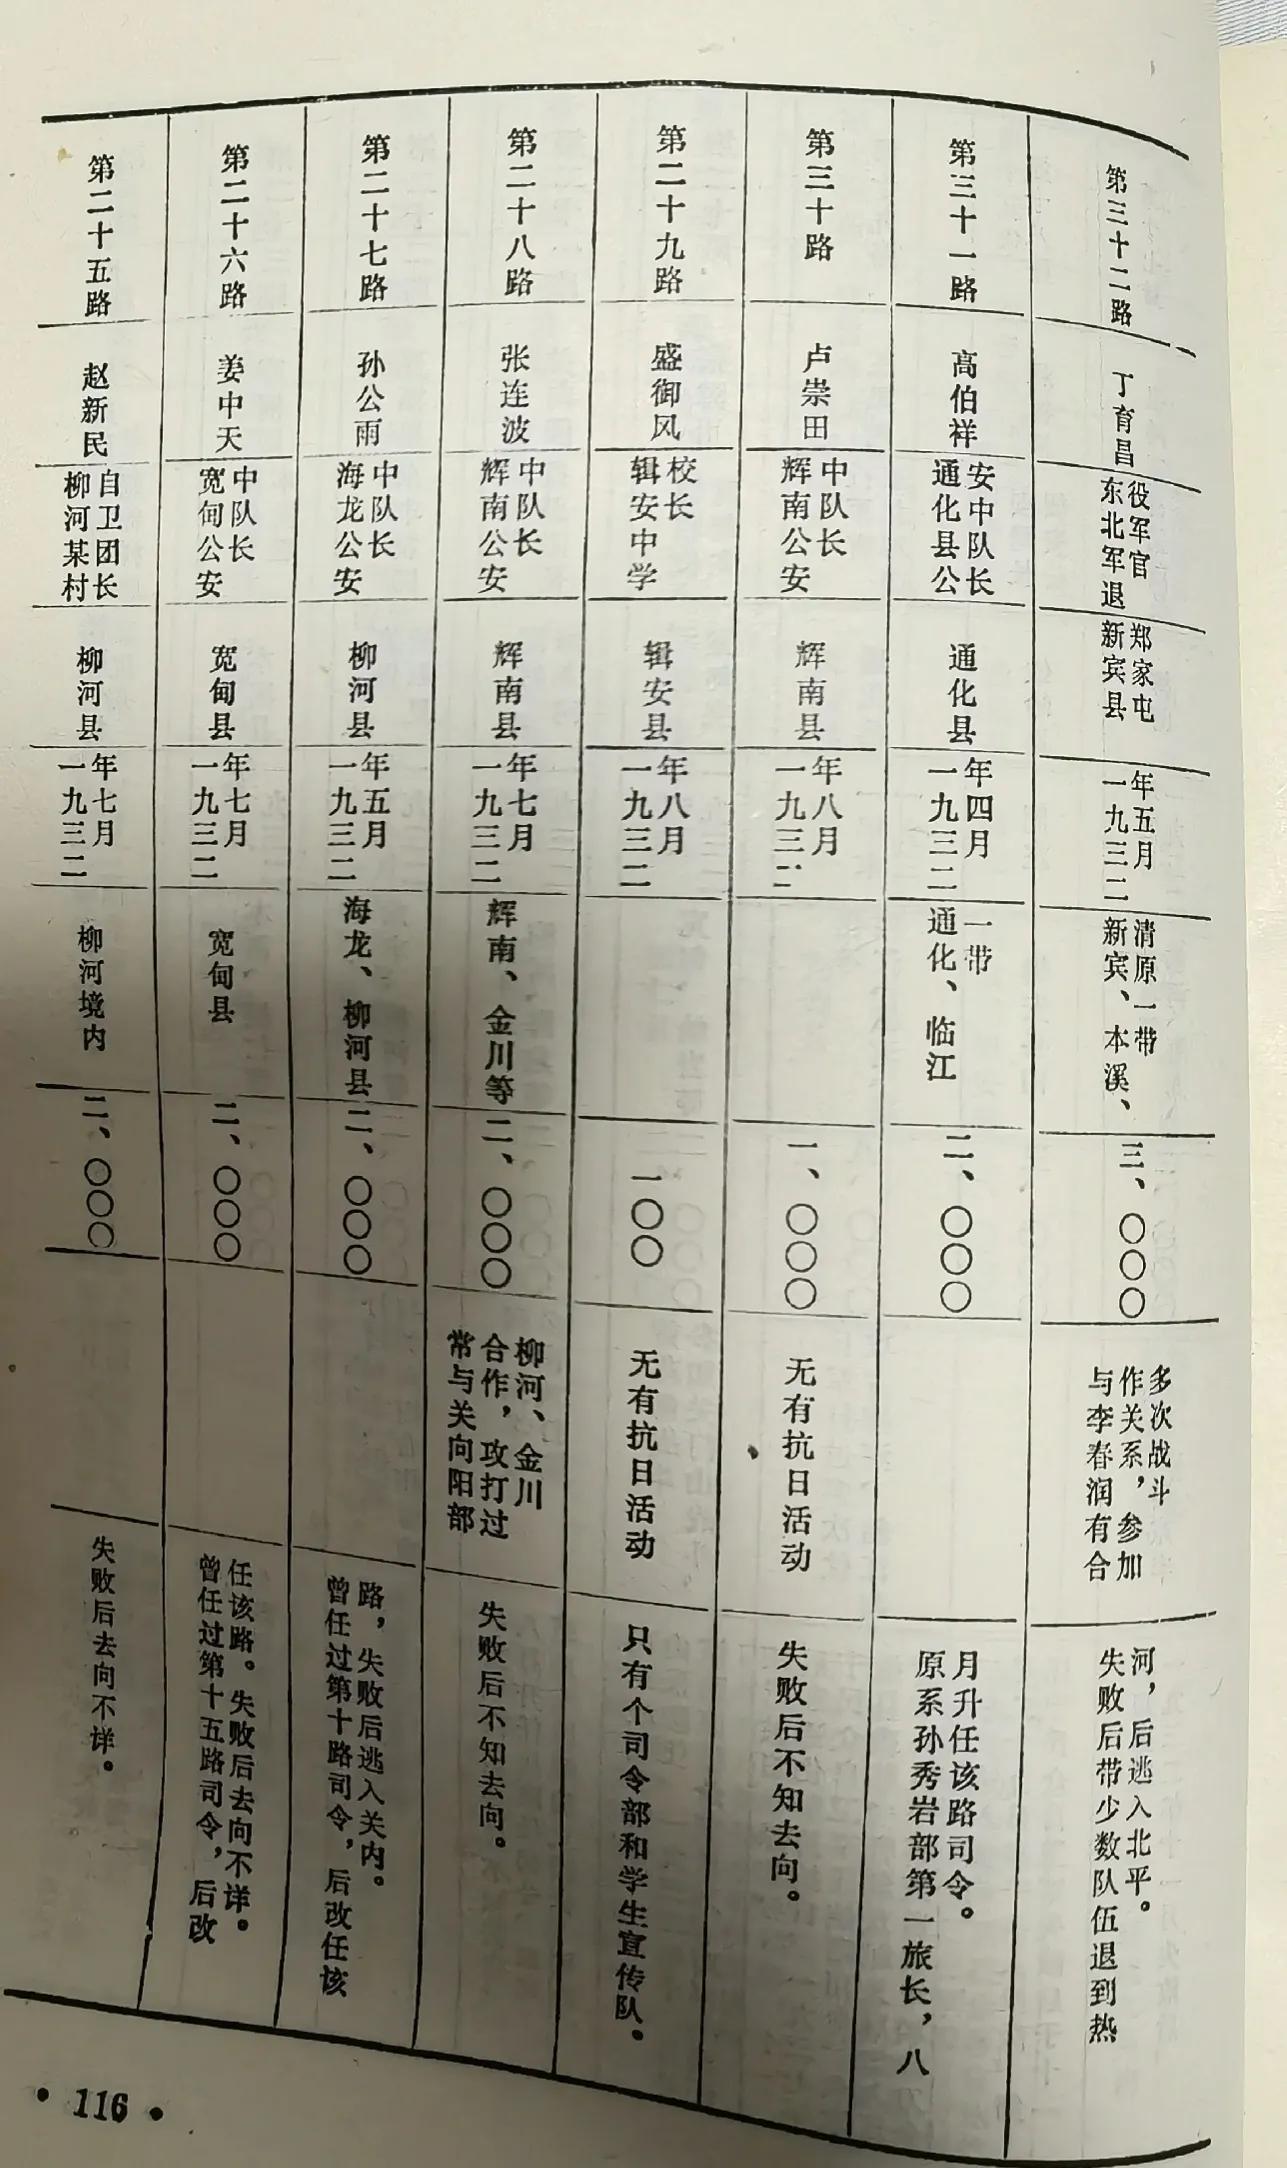 第二十五路
赵新民
柳河某村
自卫团长
柳河县
一九三二
年七月
柳河境内
二、〇〇〇
失败后去向不详。
第二十六路
姜中天
宽甸公安
中队长
宽甸县
一九三二
年七月
宽甸县
二、〇〇〇
曾任过第十五路司令，后改
任该路。失败后去向不详。
第二十七路
孙公雨
海龙公安
中队长
柳河县
一九三二
年五月
海龙、柳河县
二、〇〇〇
曾任过第十路司令，后改任该
路，失败后逃入关内。
第二十八路
张连波
辉南公安
中队长
辉南县
一九三二
年七月
辉南、金川等
二、〇〇〇
常与关向阳部
合作，攻打过
柳河、金川
失败后不知去向。
第二十九路
盛御风
辑安中学
校长
辑安县
一九三二
年八月
一〇〇
无有抗日活动
只有个司令部和学生宣传队。
第三十路
卢崇田
辉南公安
中队长
辉南县
一九三二
年八月
一、〇〇〇
无有抗日活动
失败后不知去向。
第三十一路
高伯祥
通化县公
安中队长
通化县
一九三二
年四月
通化、临江
一带
二、〇〇〇
原系孙秀岩部第一旅长，八
月升任该路司令。
第三十二路
丁育昌
东北军退
役军官
新宾县
郑家屯
一九三二
年五月
新宾、本溪、
清原一带
三、〇〇〇
与李春润有合
作关系，参加
多次战斗
失败后带少数队伍退到热
河，后逃入北平。
•116•